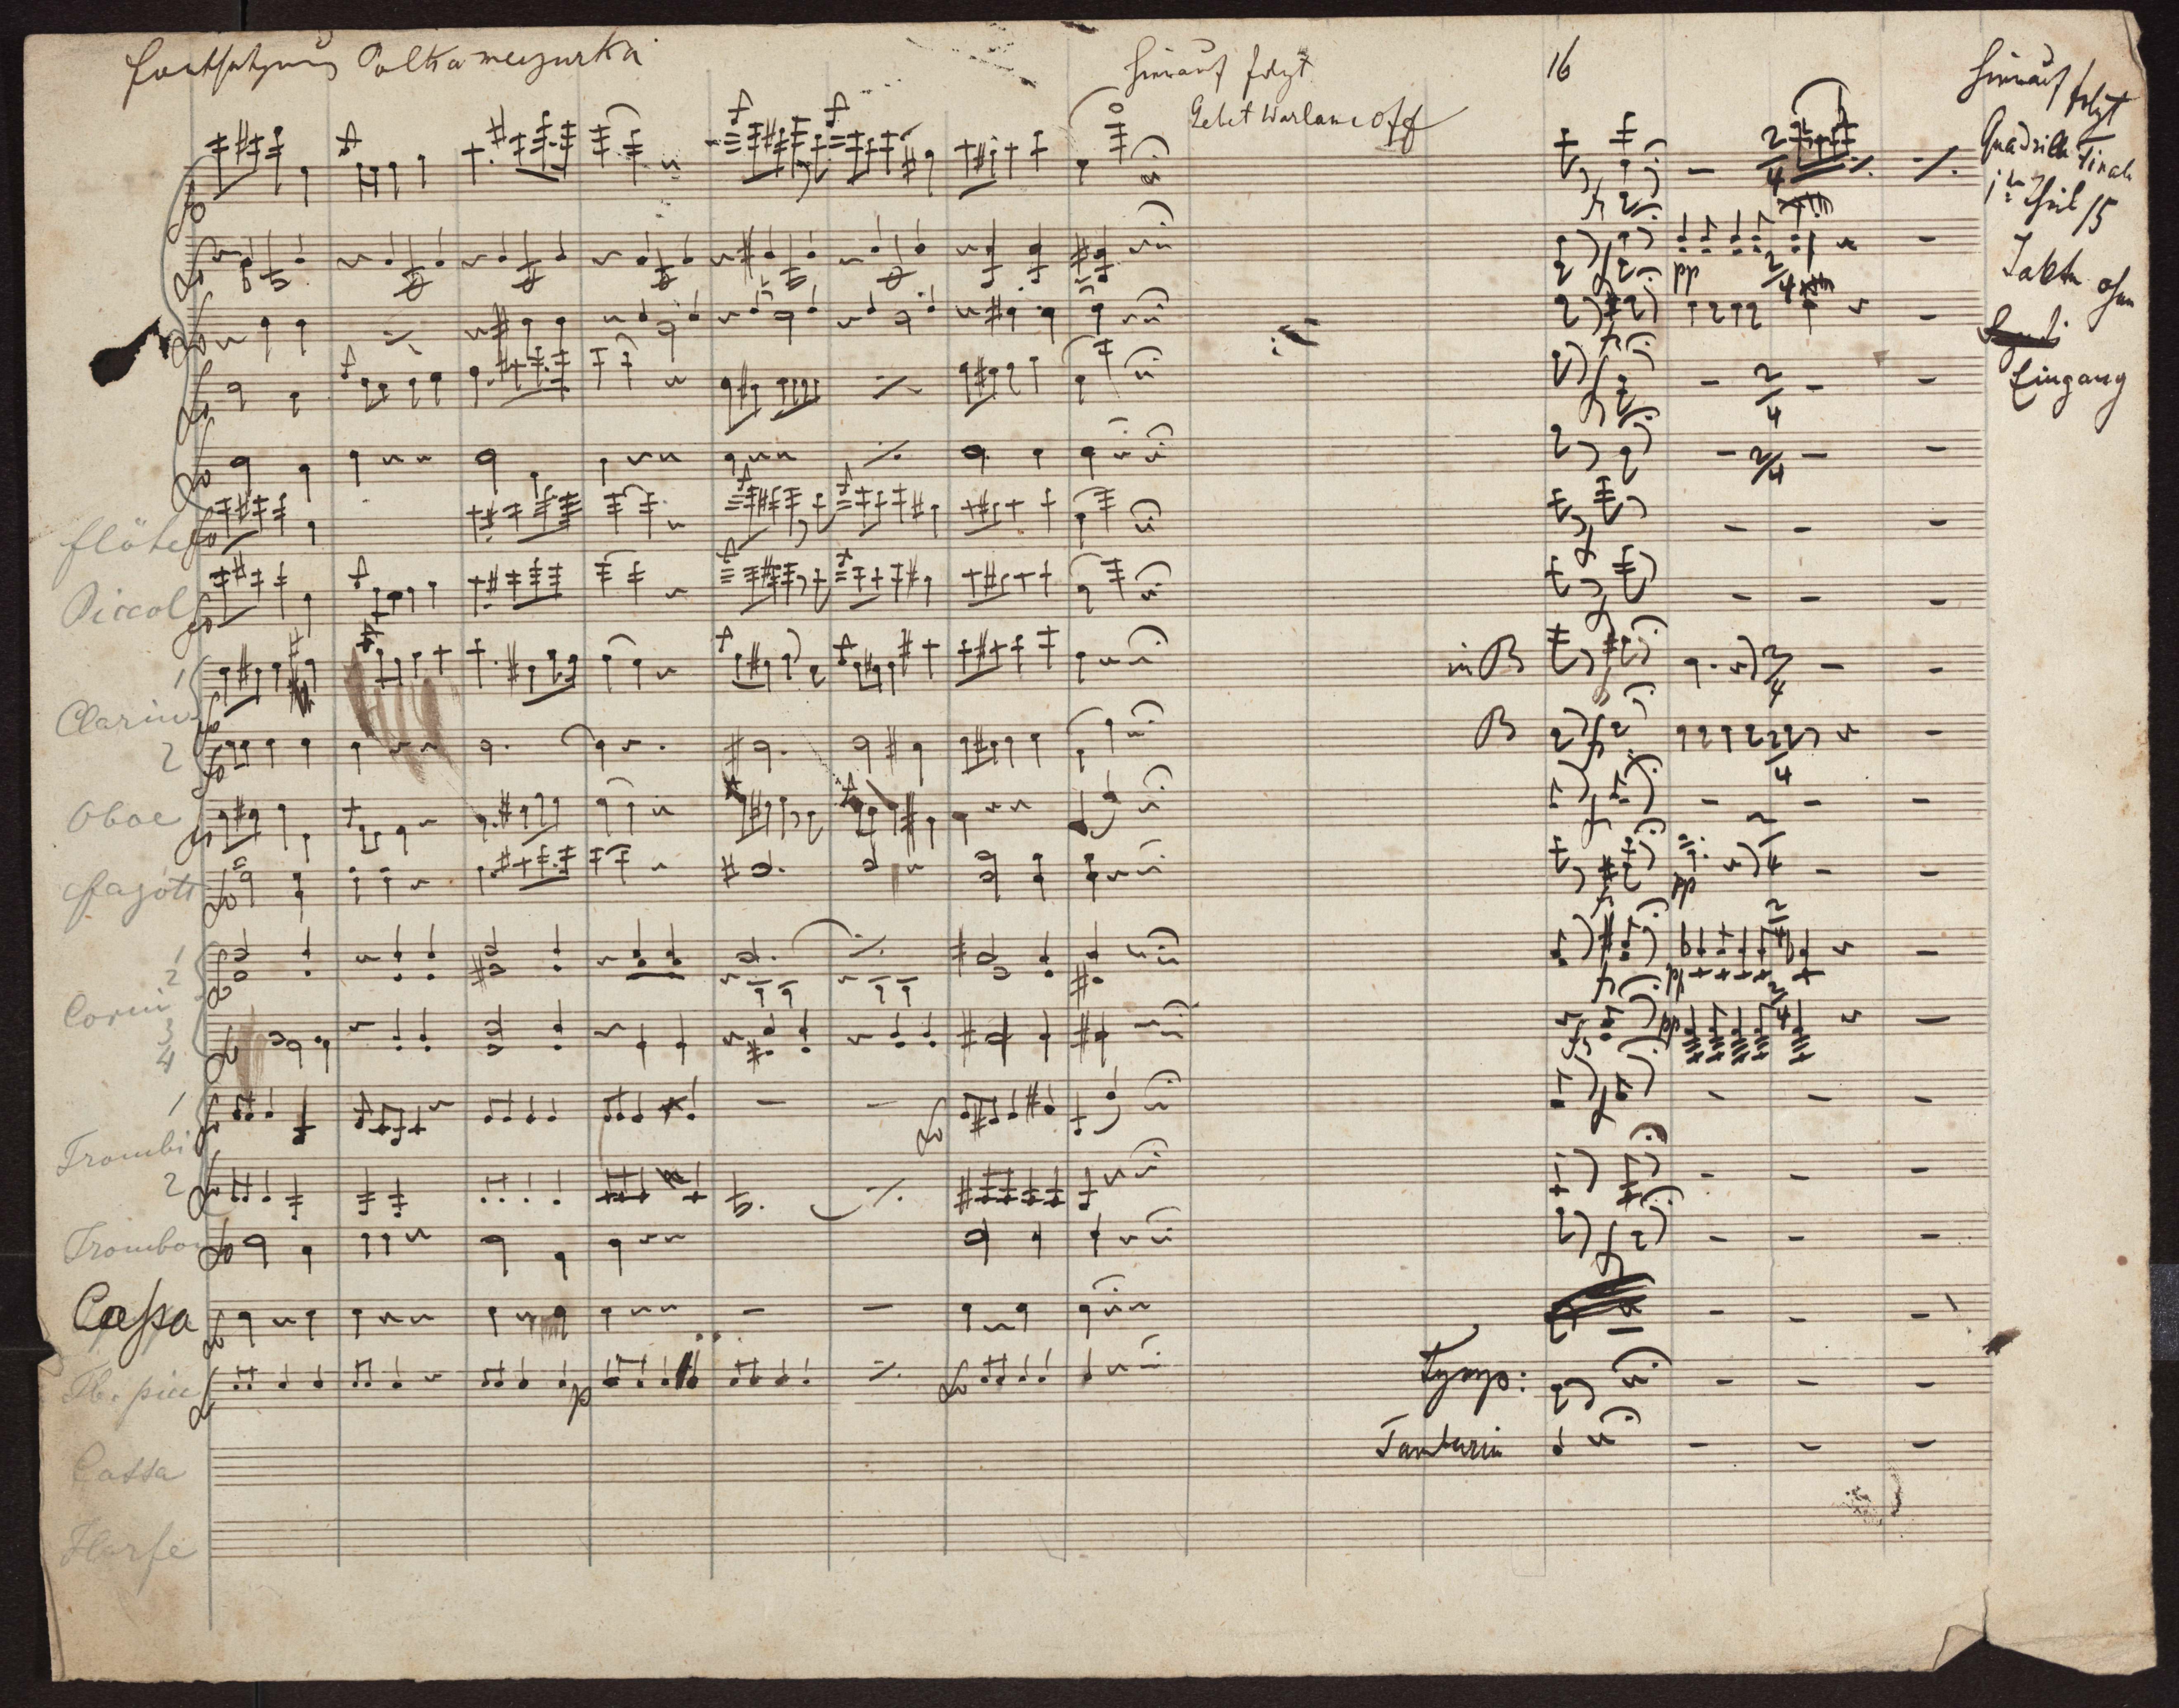 Fortsetzung Polka mazurka
hierauf folgt
Gebet Warlamoff
16
hierauf folgt
Quadrille Finale
1r Theil 15
Takte ohne
Eingang
flöte
Piccol
1
Clarin
2
Oboe
fagotti
1
2
Corni
3
4
1
Trombi
2
Trombon
Cassa
Tb. picc
Cassa
Harfe
in B
B
Tymp:
Tamburin
pp
pp
pp
pp
p
2/4
2/4
2/4
2/4
2/4
2/4
2/4
2/4
2/4